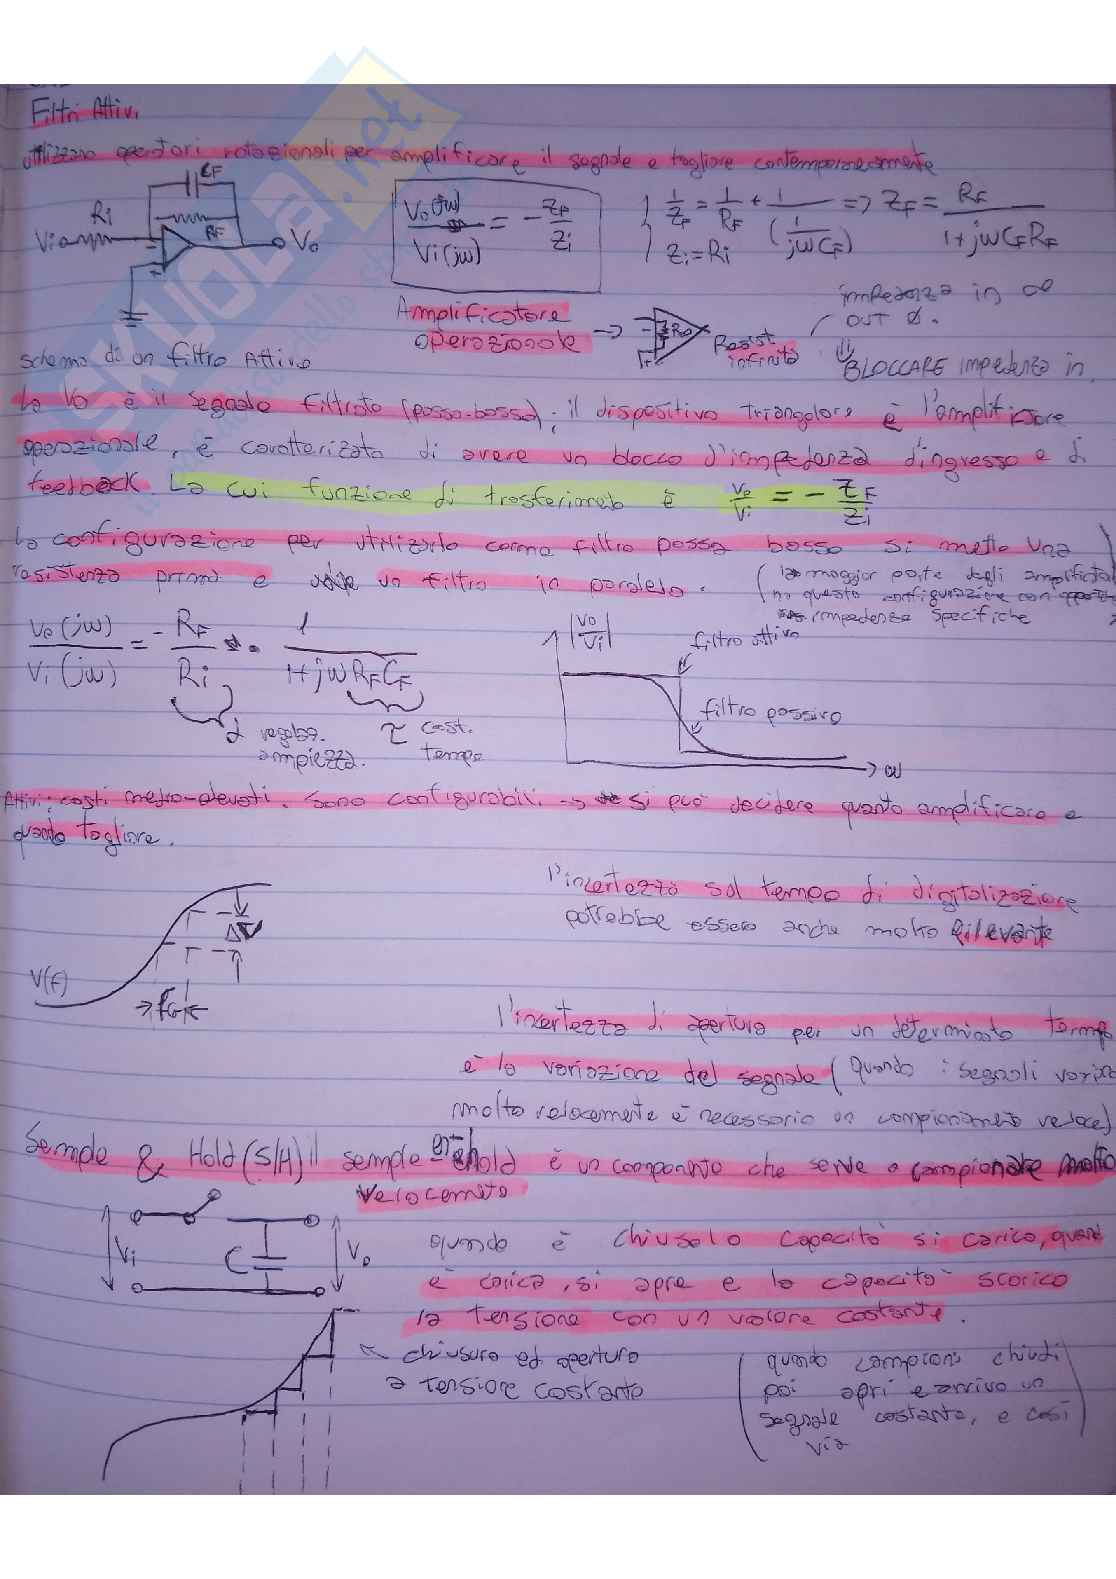 Filtri Attivi
utilizzano operatori rotazionali per amplificare il segnale e tagliare contemporaneamente
CF
Ri
RF
Vi
Vo
Vo(jw) / Vi(jw) = - ZF / Zi
1/ZF = 1/RF + 1/(1/jwCF) => ZF = RF / 1+jwCFRF
Zi=Ri
Amplificatore operazionale
Resist infinita
impedenza in ∞
OUT 0.
BLOCCARE impedenza in
schema di un filtro Attivo
La Vo è il segnale filtrato (passa-basso); il dispositivo triangolare è l'amplificatore
operazionale, è caratterizzato di avere un blocco d'impedenza d'ingresso e di
feedback. La cui funzione di trasferimeb è vo/vi = - ZF/Zi
La configurazione per utilizarlo comma filtro passa basso si mette una
resistenza prima e un filtro in paralelo.
(la maggior parte degli amplificatori
ha questa configurazione con
impedenza specifiche
Vo(jw) / Vi(jw) = - RF / Ri . 1 / 1+jwRFCF
regolaz. ampiezza.
τ cost. tempo
|Vo/Vi|
filtro attivo
filtro passivo
ω
Attivi: costi medio-elevati. Sono configurabili. -> si può decidere quanto amplificare e
quando tagliare.
l'incertezza sul tempo di digitalizazione
potrebbe essere anche molto rilevante
ΔV
V(t)
l'incertezza di apertura per un determinato tempo
è la variazione del segnale (quando i segnali variano
molto velocemente è necessario un campionamento veloce)
Semple & Hold (S/H) il semple end hold è un componente che serve a campionare molto
velocemente
Vi
C
Vo
quando è chiuso la capacità si carica, quando
è carica, si apre e la capacità scarica
la tensione con un valore costante.
chiusura ed apertura
a tensione costante
(quando campioni chiudi
poi apri e arriva un
segnale costante, e così
via)
SKUOLA.net